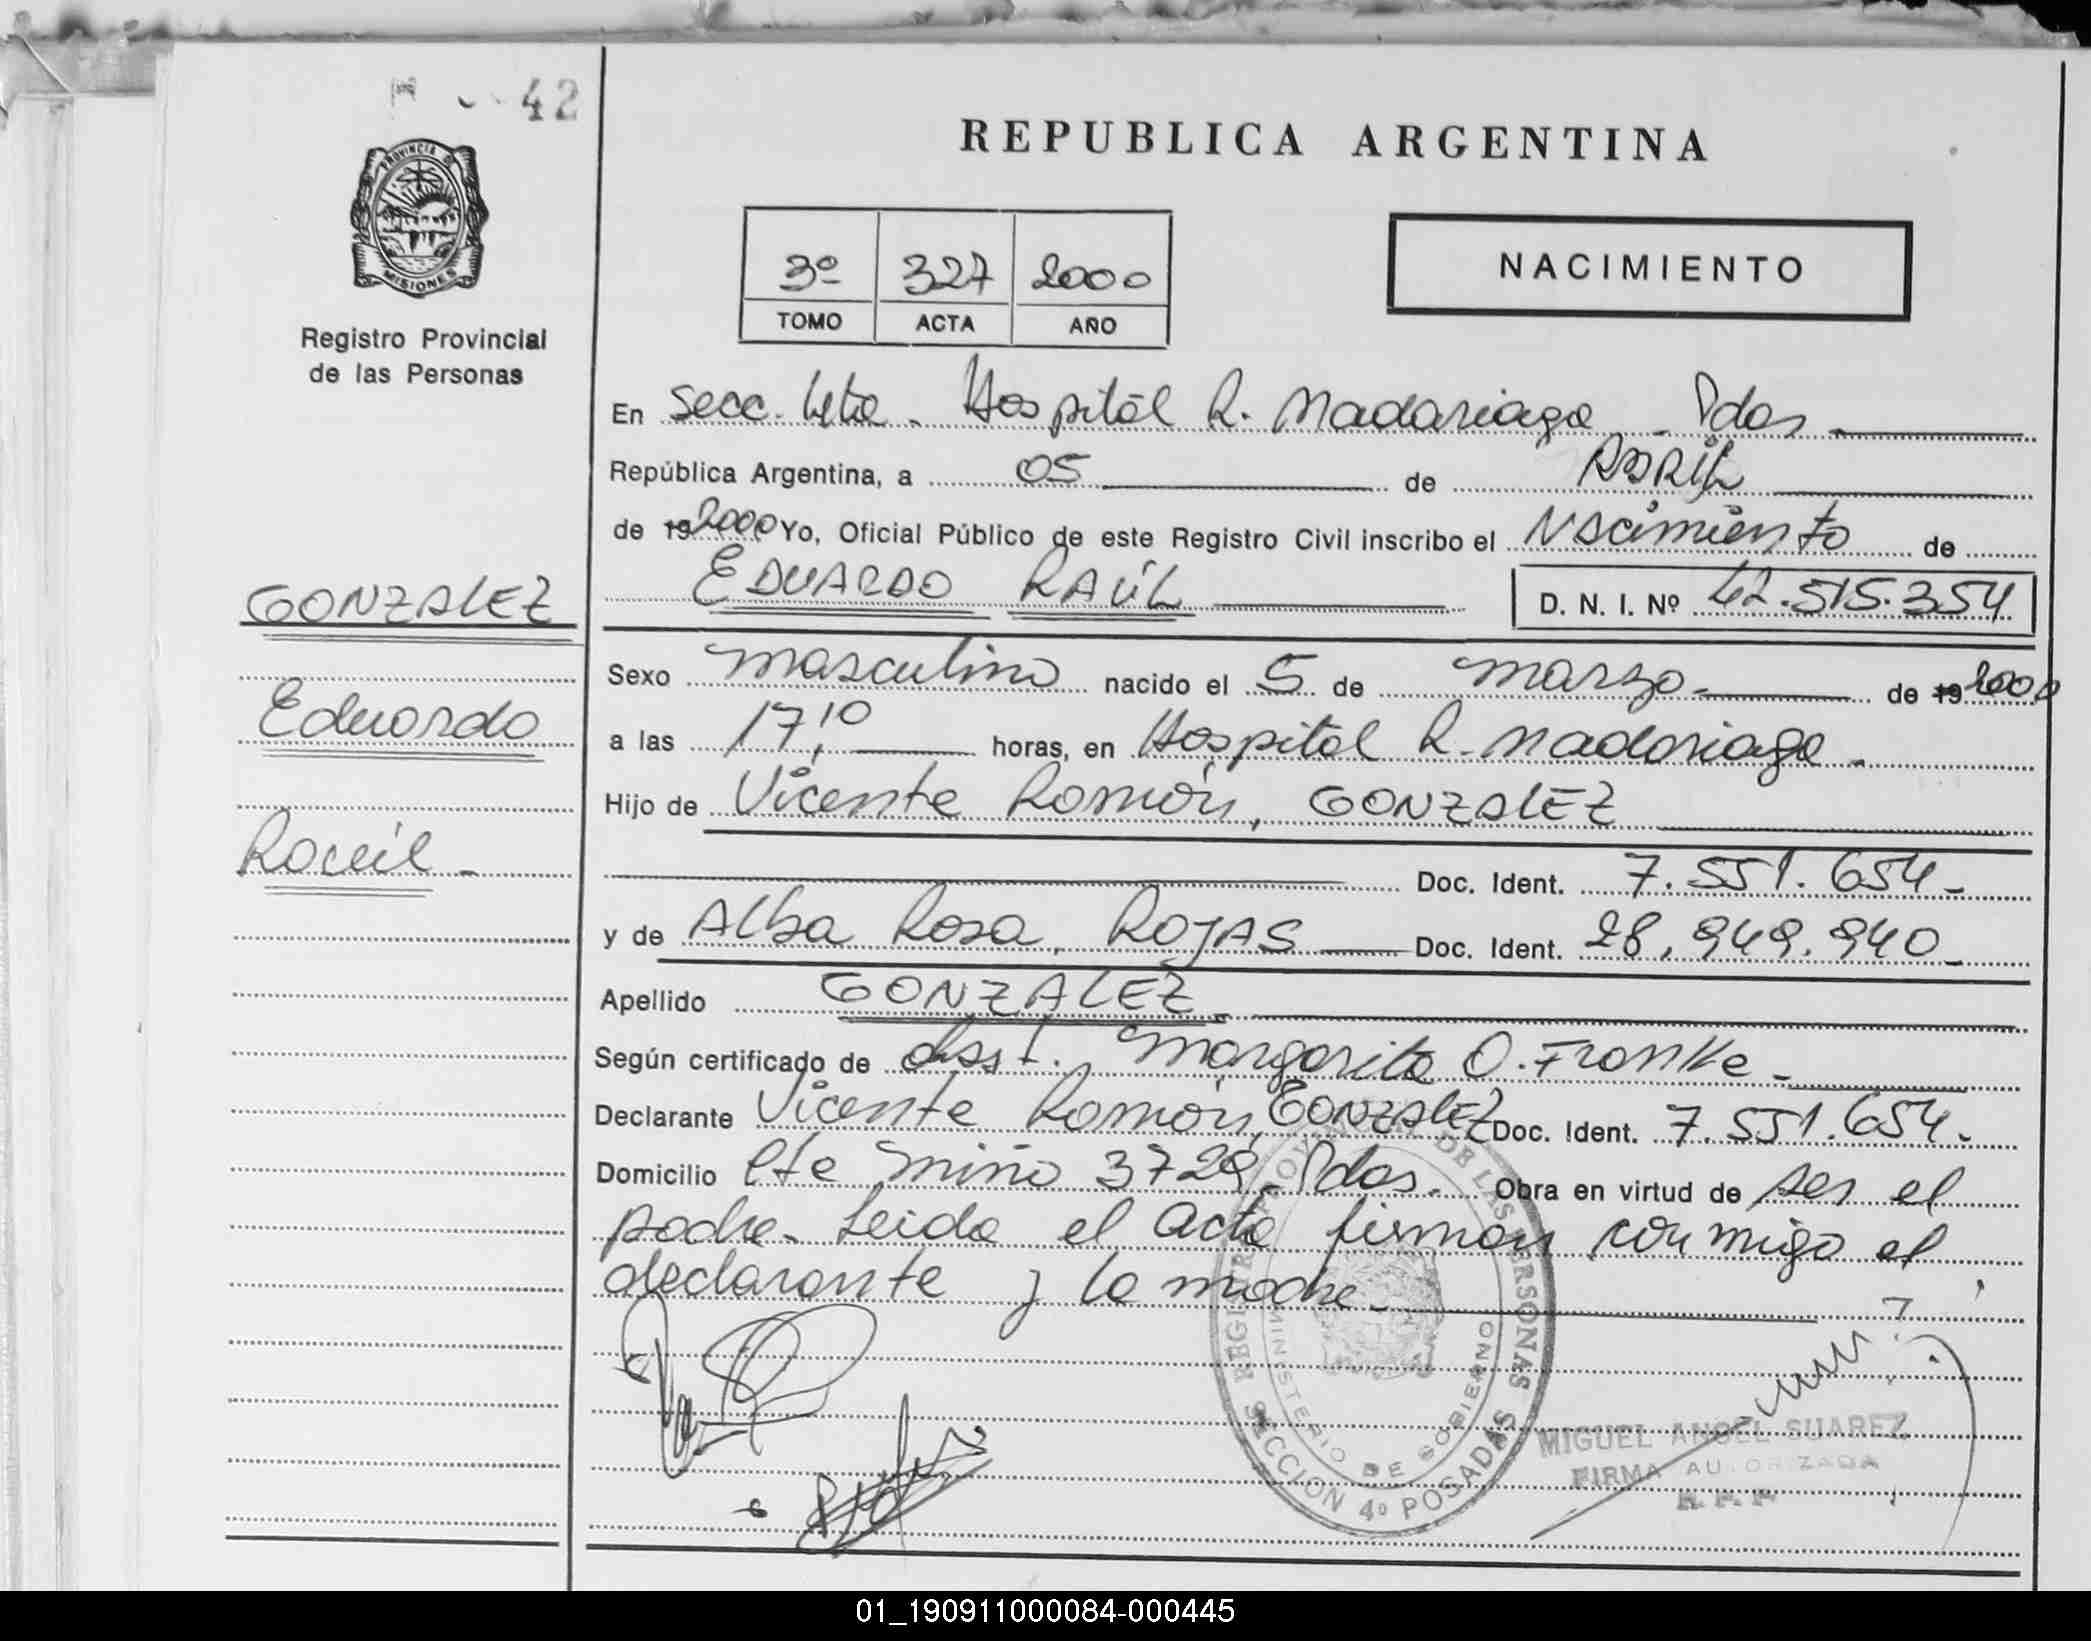 42
PROVINCIA D
MISIONES
Registro Provincial
de las Personas
REPUBLICA ARGENTINA
3º 327 2000
TOMO ACTA AÑO
NACIMIENTO
En Secc. 4ta. Hospital R. Madariaga - Pdas -
República Argentina, a 05 de ABRIL
de 19 2000 Yo, Oficial Público de este Registro Civil inscribo el Nacimiento de
EDUARDO RAÚL D. N. I. Nº 42.515.354
GONZALEZ
Eduardo
Raúl -
Sexo masculino nacido el 5 de marzo - de 19 2000
a las 17,10 horas, en Hospital R. Madariaga -
Hijo de Vicente Ramón, GONZALEZ
Doc. Ident. 7.551.654 -
y de Alba Rosa, ROJAS Doc. Ident. 28.949.940 -
Apellido GONZALEZ -
Según certificado de Obst. Margarita O. Franke -
Declarante Vicente Ramón, GONZALEZ Doc. Ident. 7.551.654 -
Domicilio Cte Miño 3729 Pdas. Obra en virtud de ser el
padre - Leida el acta firman conmigo el
declarante y la madre -
REGISTRO PROVINCIAL DE LAS PERSONAS
MINISTERIO DE GOBIERNO
SECCION 4º POSADAS
MIGUEL ANGEL SUAREZ
FIRMA AUTORIZADA
R. P. P.
01_190911000084-000445